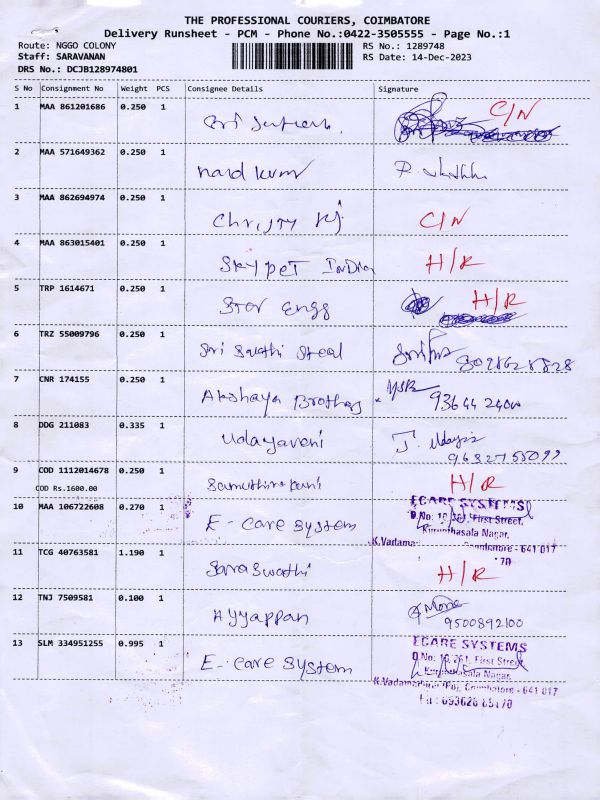 THE PROFESSIONAL COURIERS, COIMBATORE
Delivery Runsheet - PCM - Phone No.:0422-3505555 - Page No.:1
Route: NGGO COLONY RS No.: 1289748
Staff: SARAVANAN RS Date: 14-Dec-2023
DRS No.: DCJB128974801
S No Consignment No Weight PCS Consignee Details Signature
1 MAA 861201686 0.250 1 C/N
2 MAA 571649362 0.250 1 nand kumar
3 MAA 862694974 0.250 1 Christy C/N
4 MAA 863015401 0.250 1 Skypet India H/R
5 TRP 1614671 0.250 1 Star Engg H/R
6 TRZ 55009796 0.250 1 Sri Sakthi Steel
7 CNR 174155 0.250 1 Akshaya Brothers
8 DDG 211083 0.335 1 Udayaveni J. Udaya
9 COD 1112014678 0.250 1 H/R
COD Rs.1600.00
10 MAA 106722608 0.270 1 E-Care System ECARE SYSTEMS
D.No: 10, 261, First Street,
Nagar,
Coimbatore - 641 017
11 TCG 40763581 1.190 1 Saraswathi H/R
12 TNJ 7509581 0.100 1 Ayyappan
9500892100
13 SLM 334951255 0.995 1 E-Care System ECARE SYSTEMS
D.No: 10, 261, First Street
Nagar,
Coimbatore - 641 017